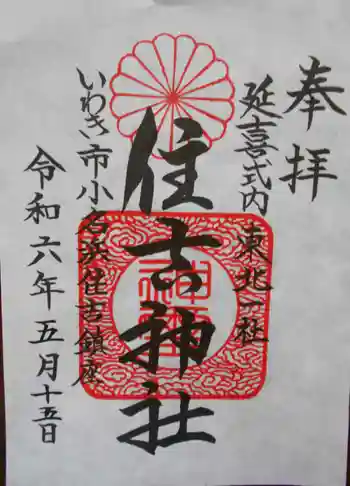 奉拝
延喜式内 東北一社
住吉神社
いわき市小名浜住吉鎮座
令和六年五月十五日